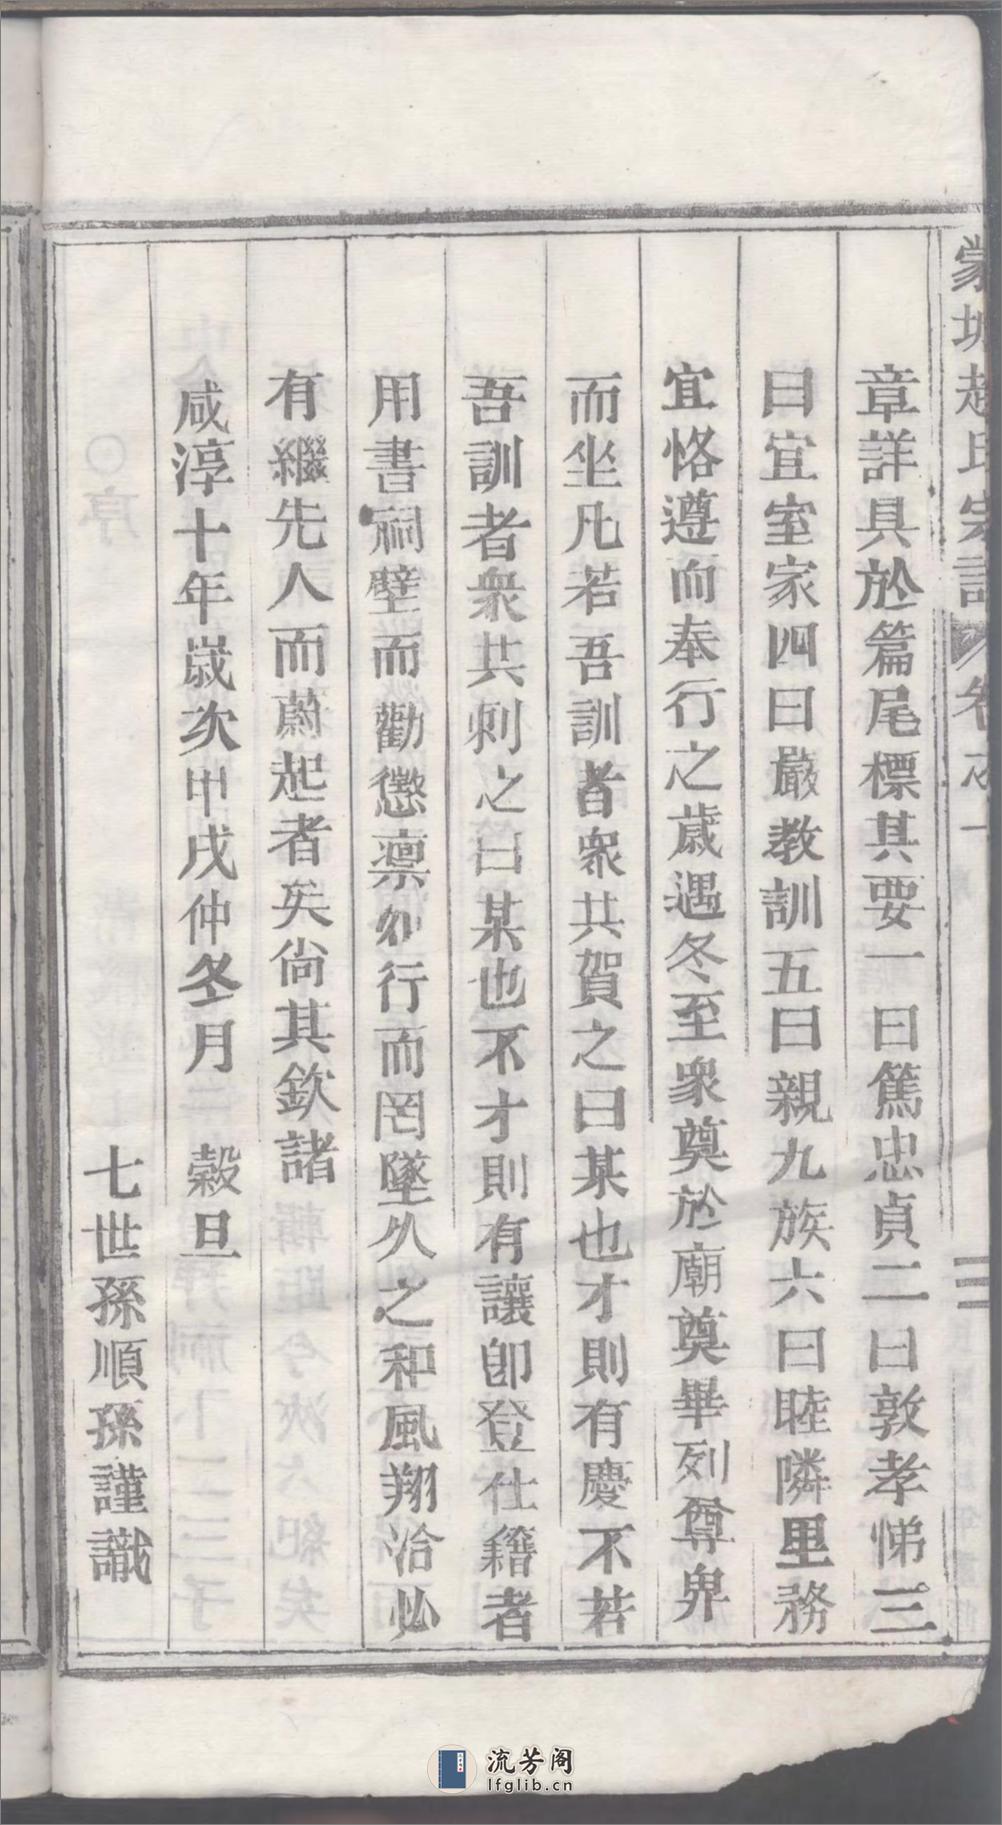 章詳具於篇尾標其要一曰篤忠貞二曰敦孝悌三
曰宜室家四曰嚴教訓五曰親九族六曰睦隣里務
宜恪遵而奉行之歲遇冬至衆奠於廟奠畢列尊卑
而坐凡若吾訓者衆共賀之曰某也才則有慶不若
吾訓者衆共刺之曰某也不才則有讓卽登仕籍者
用書祠壁而勸懲禀外行而罔墜久之和風翔洽必
有繼先人而蔚起者矣尙其欽諸
咸淳十年歲次甲戌仲冬月 穀旦
七世孫順孫謹識
流芳阁
lfglib.cn